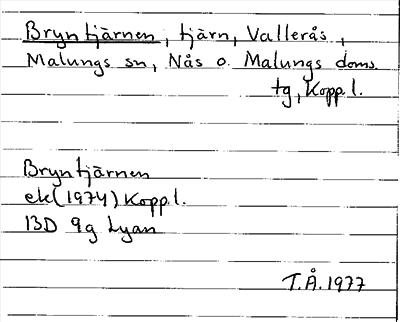 Bryntjärnen, tjärn, Vallerås,
Malungs sn, Nås o. Malungs doms.
tg, Kopp.l.
Bryntjärnen
ek(1974) Kopp.l.
13D 9g Lyan
T.Å. 1977